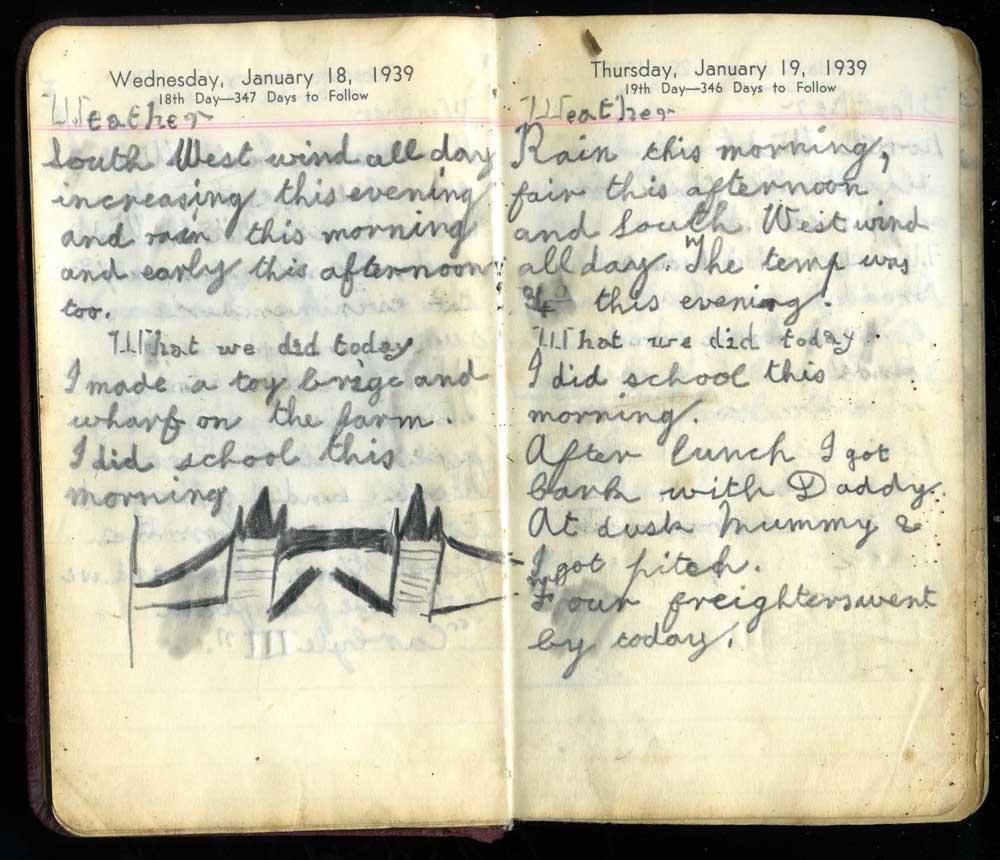 Wednesday, January 18, 1939
18th Day—347 Days to Follow
Weather
South West wind all day
increasing this evening
and rain this morning
and early this afternoon
too.
What we did today.
I made a toy brige and
wharf on the farm.
I did school this
morning
Thursday, January 19, 1939
19th Day—346 Days to Follow
Weather
Rain this morning,
fair this afternoon
and South West wind
all day. The temp was
this evening.
What we did today.
I did school this
morning.
After lunch I got
bark with Daddy.
At dusk Mummy &
I got pitch.
Four freighters went
by today.